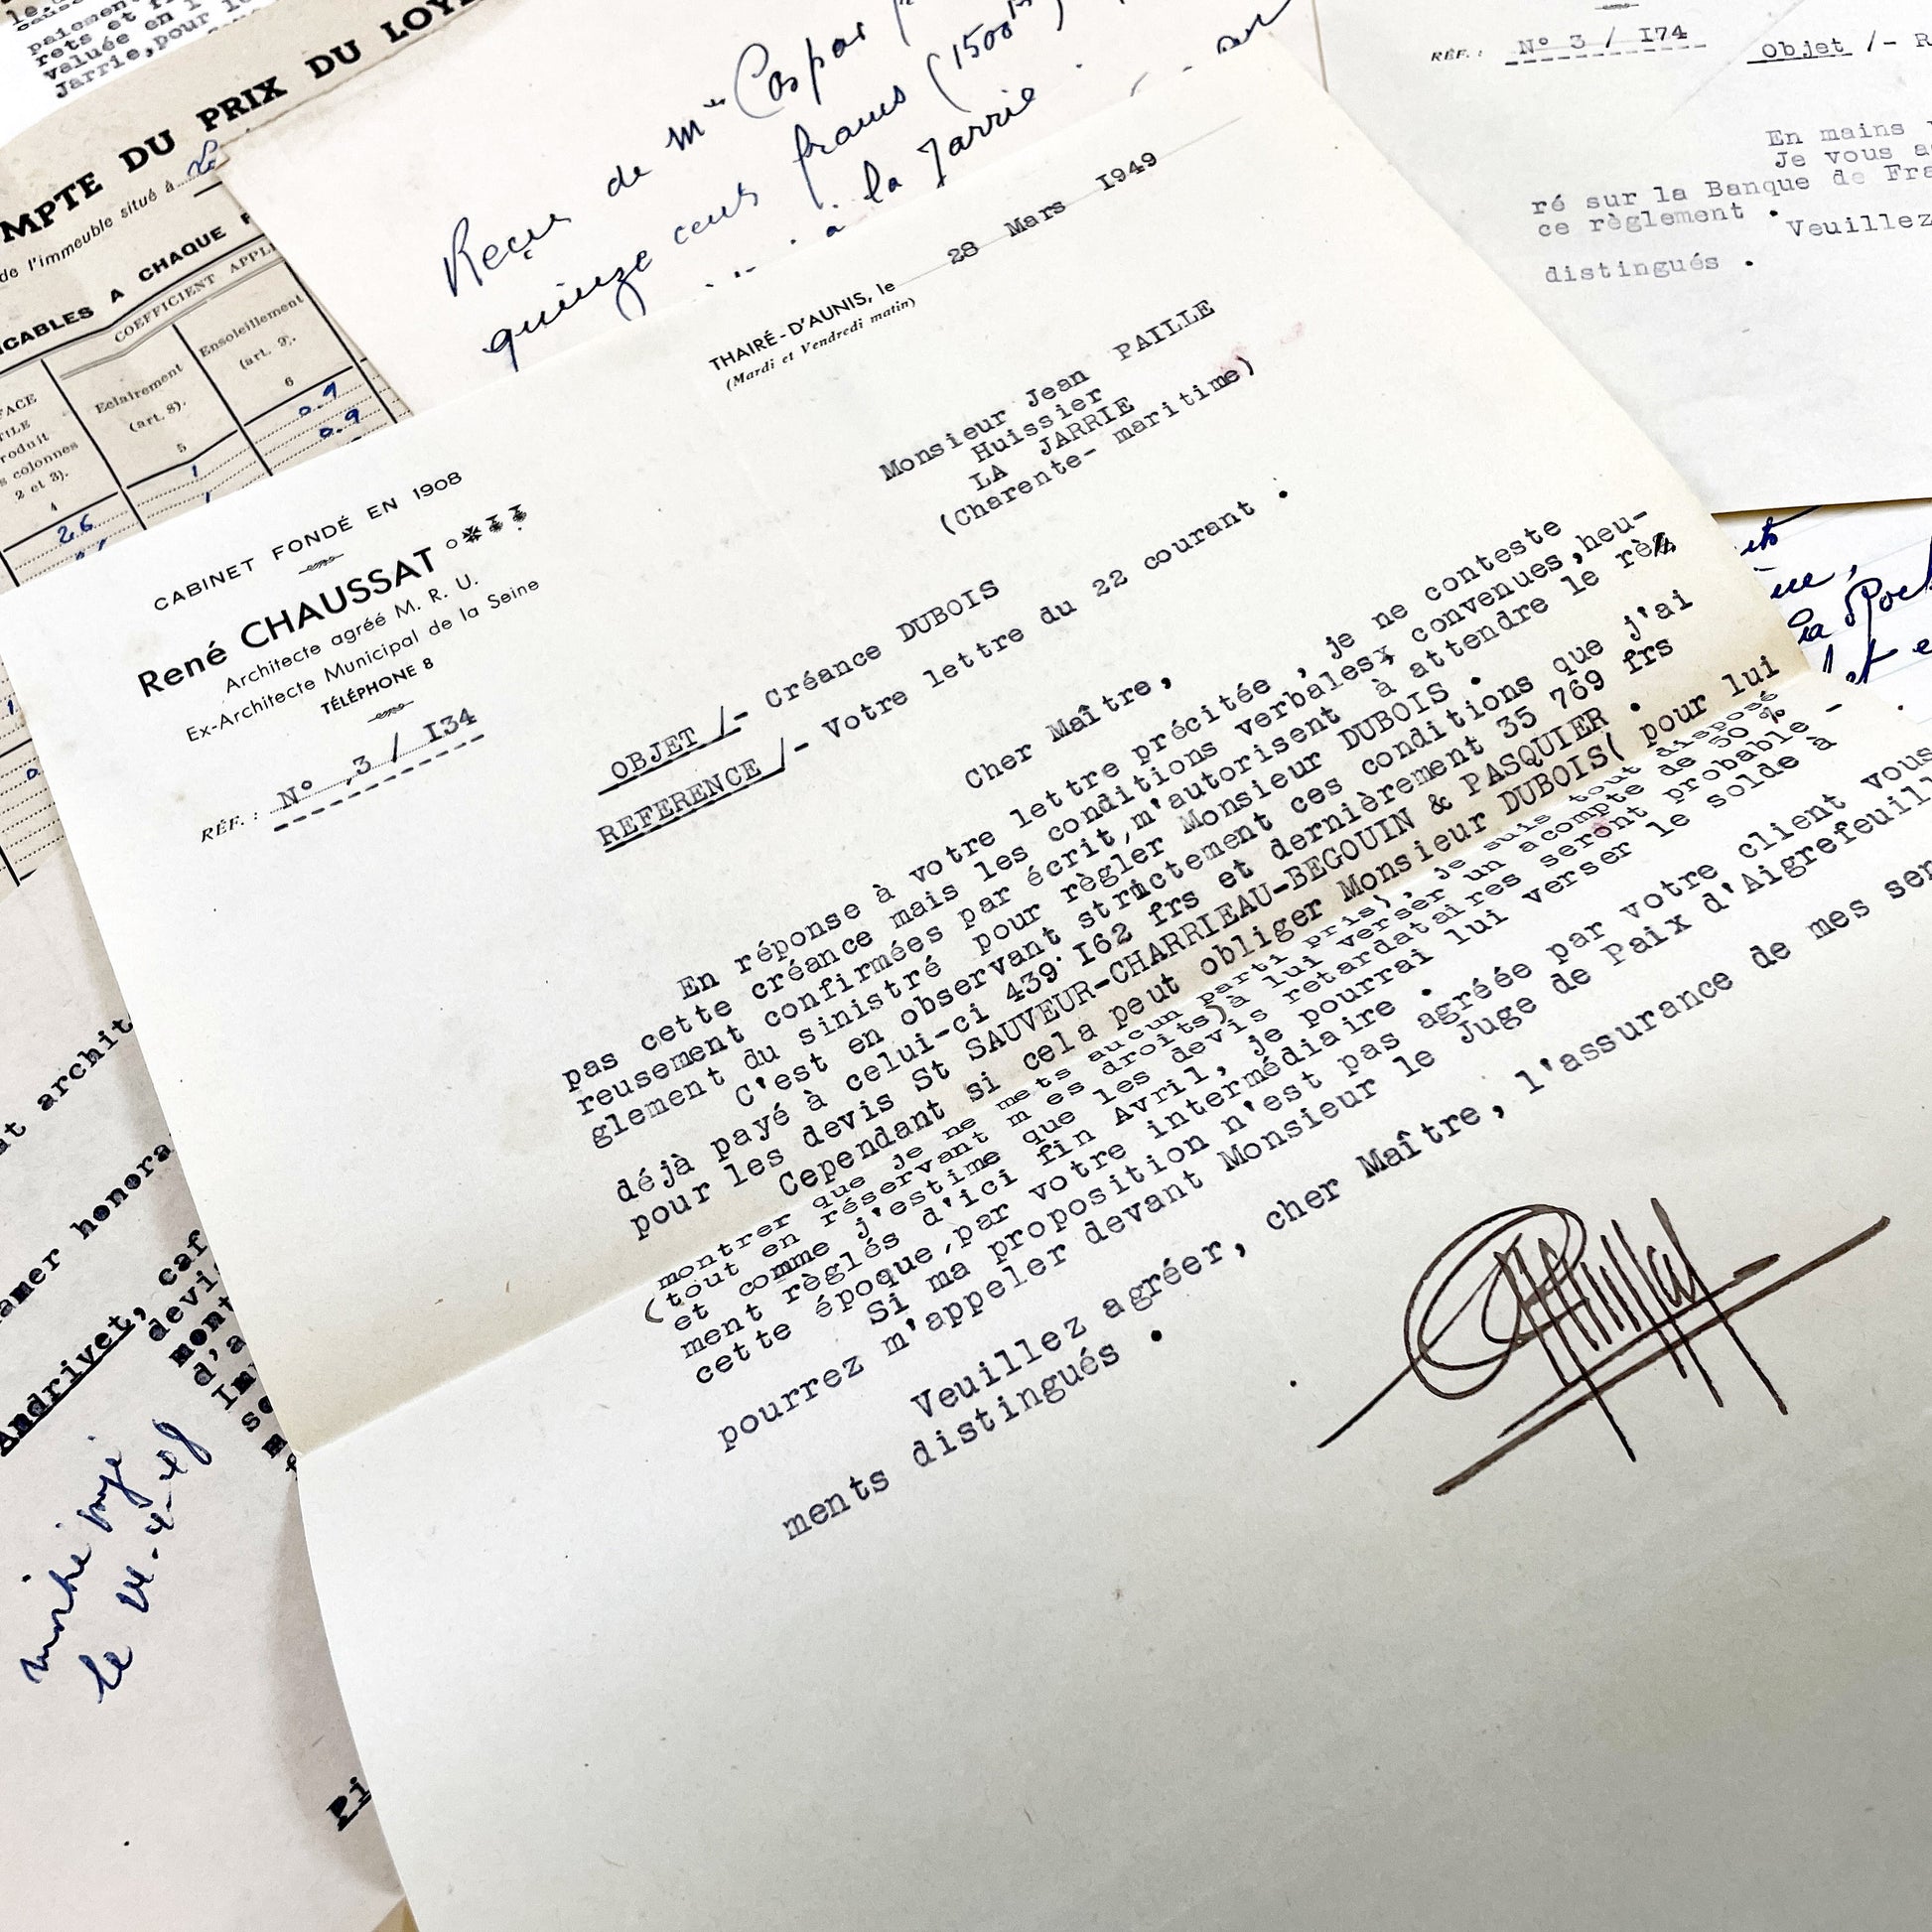 MPTE DU PRIX DU LOY
de l'immeuble situé à
ICABLES A CHAQUE
COEFFICIENT APPL
Eclairement
(art. 8).
5
Ensoleillement
(art. 9).
6
FACE
TILE
roduit
s colonnes
2 et 3).
4
26
1
1
0.9
0.9
paiement
rets et
valuée en
Jarrie, pour
Reçu de Mme Caspar
quinze cents francs (1500
à la Jarrie
RÉF. : N° 3 / I74
Objet /- R
En mains
Je vous a
ré sur la Banque de Fra
ce règlement .
Veuillez
distingués .
THAIRÉ-D'AUNIS, le 28 Mars I949
(Mardi et Vendredi matin)
Monsieur Jean PAILLE
Huissier
LA JARRIE
(Charente- maritime)
CABINET FONDÉ EN 1908
René CHAUSSAT
Architecte agréé M. R. U.
Ex-Architecte Municipal de la Seine
TÉLÉPHONE 8
RÉF. : N° ,3 / I34
OBJET /- Créance DUBOIS
REFERENCE /- Votre lettre du 22 courant .
Cher Maître,
En réponse à votre lettre précitée , je ne conteste
pas cette créance mais les conditions verbales convenues,heu-
reusement confirmées par écrit,m'autorisent à attendre le rè
glement du sinistré pour règler Monsieur DUBOIS .
C'est en observant strictement ces conditions que j'ai
déjà payé à celui-ci 439.I62 frs et dernièrement 35 769 frs
pour les devis St SAUVEUR-CHARRIEAU-BEGOUIN & PASQUIER .
Cependant si cela peut obliger Monsieur DUBOIS( pour lui
montrer que je ne mets aucun parti pris), je suis tout disposé
(tout en réservant m es droits)à lui verser un acompte de 50 %
et comme j'estime que les devis retardataires seront probable -
ment règlés d'ici fin Avril, je pourrai lui verser le solde à
cette époque,par votre intermédiaire .
Si ma proposition n'est pas agréée par votre client vous
pourrez m'appeler devant Monsieur le Juge de Paix d'Aigrefeuill
Veuillez agréer, cher Maître, l'assurance de mes sen
ments distingués .
at archit
amer honora
Andrivet, caf
devi
mont
d'a
Im
Pi
le